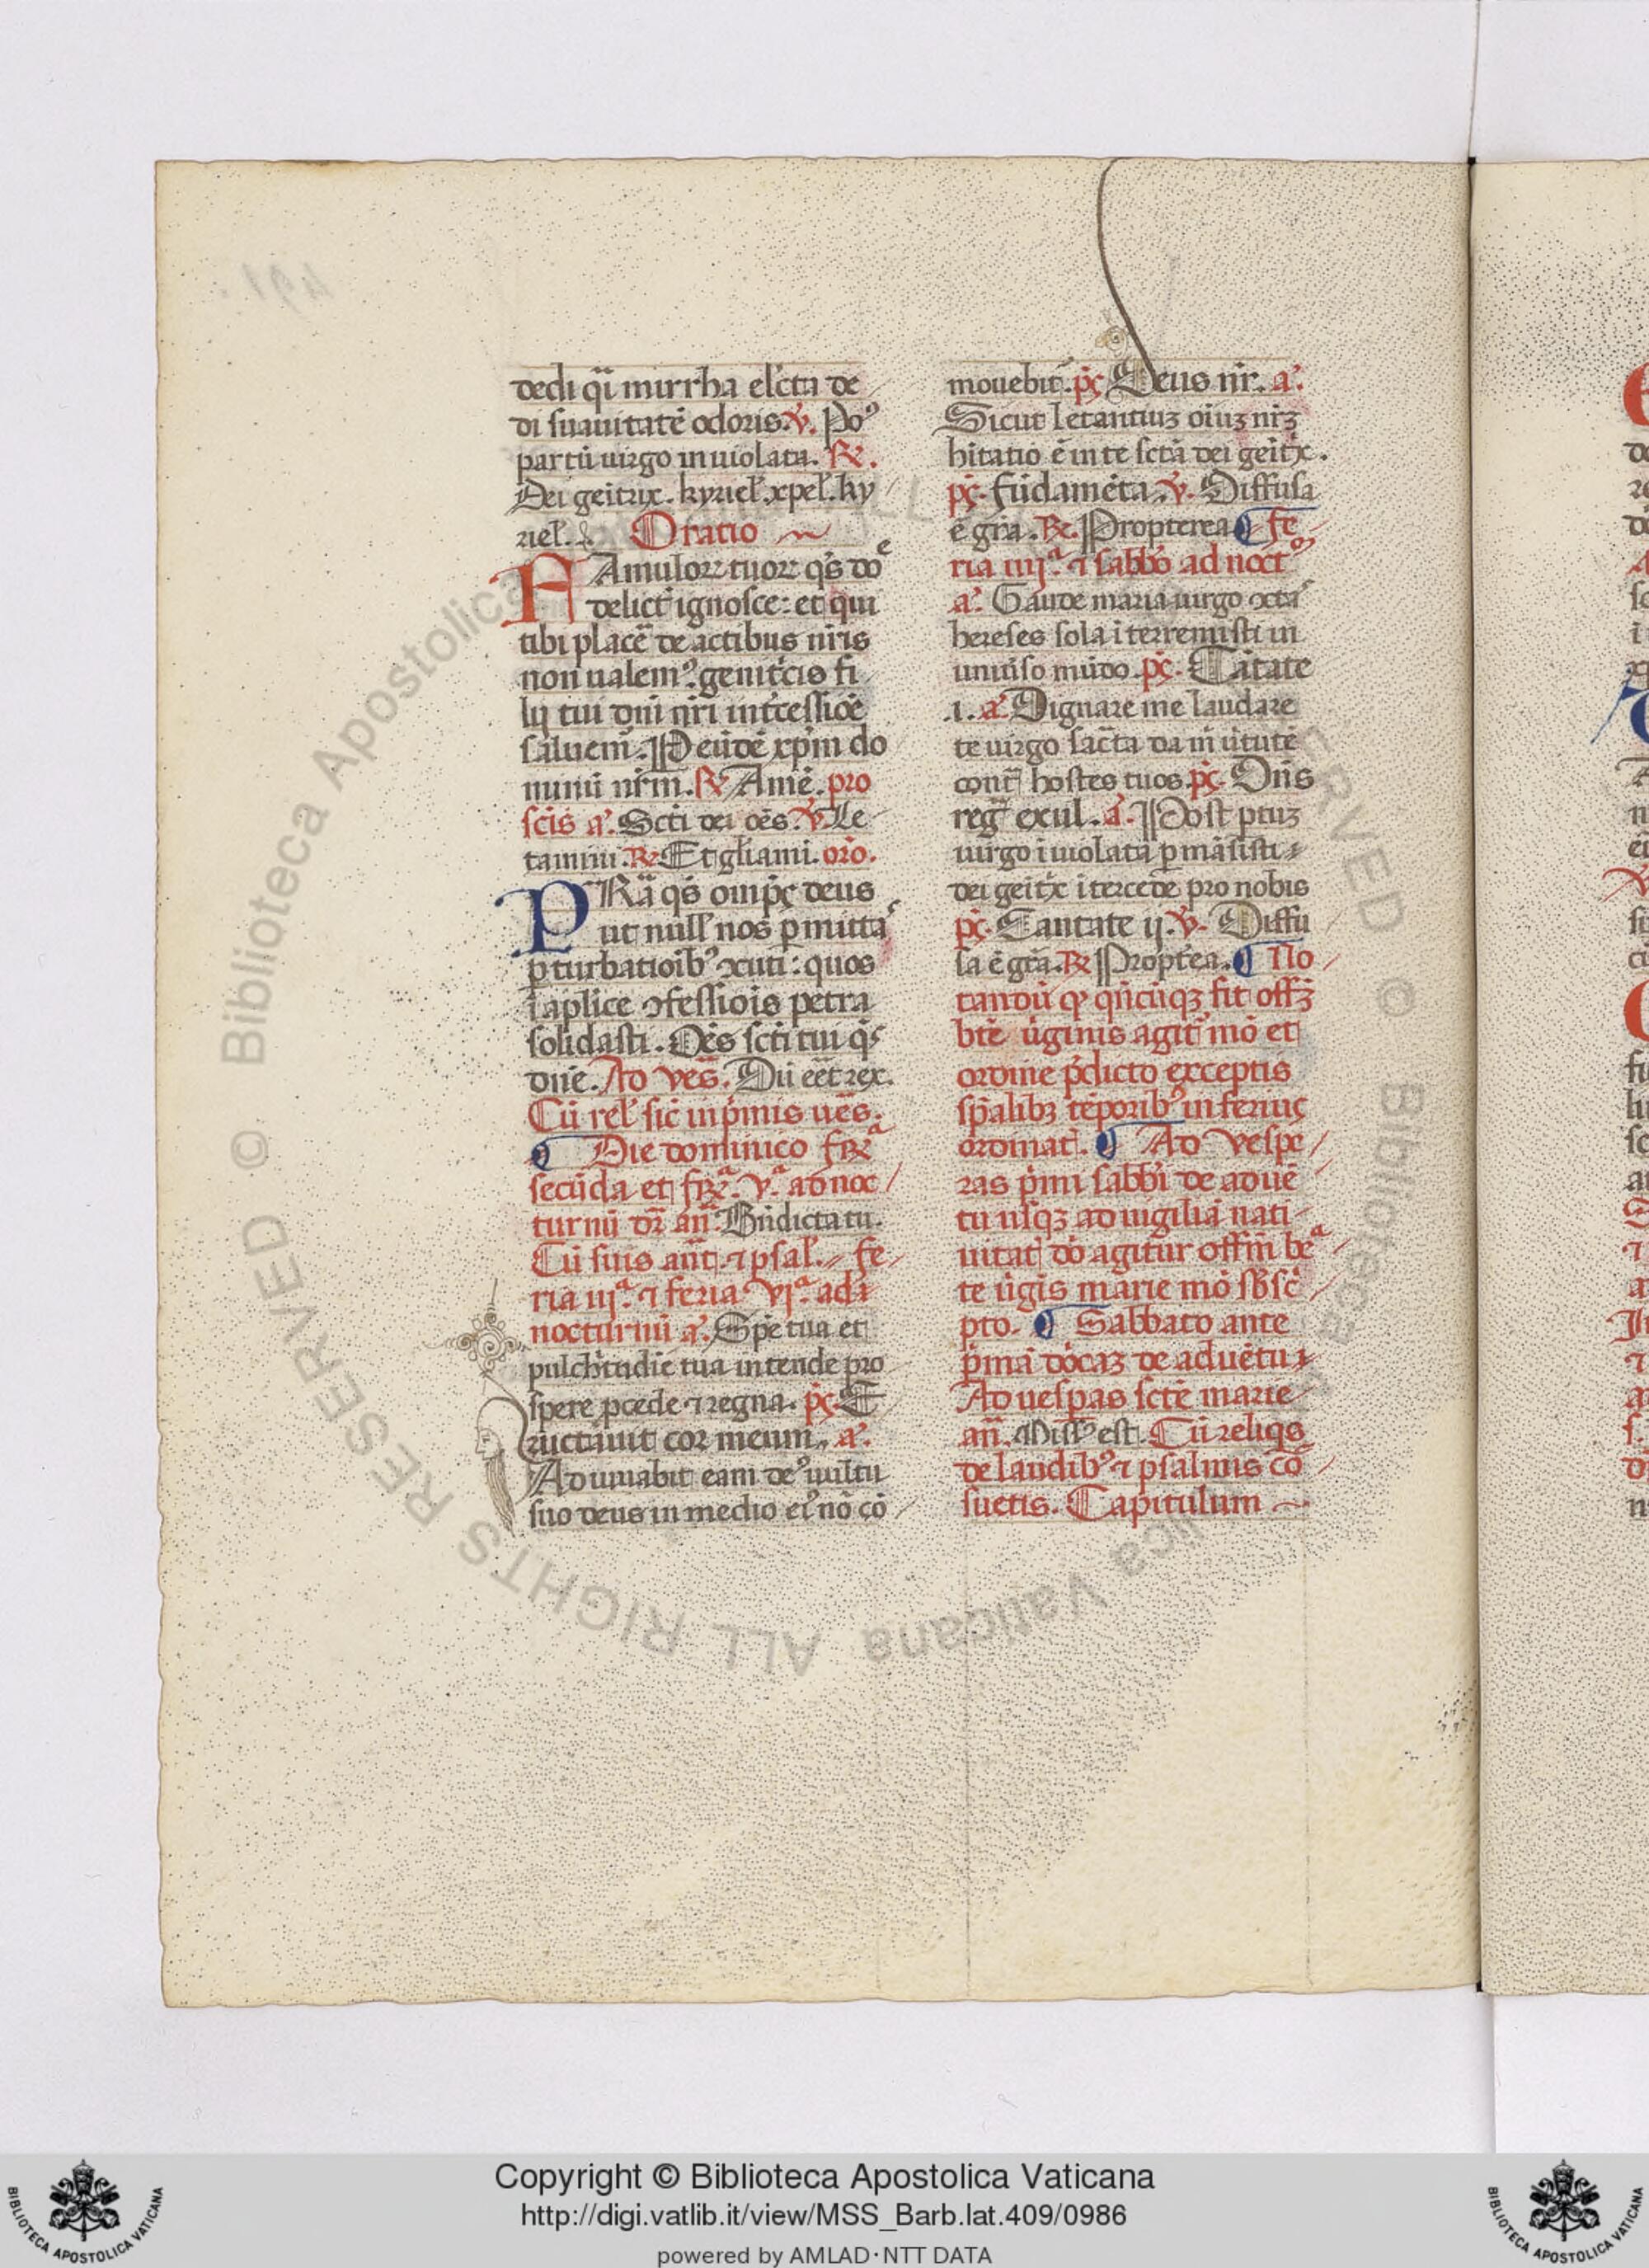 dedi q̃i mirrha elcta de
di suauitatē odoris. ℣. Poꝰ
partū uirgo inuiolata. ℟.
Dei geitrix. kyriel. xpel. ky
riel. Oratio
FAmuloꝝ tuoꝝ qs̄ dō
delict̄ ignosce: et qui
tibi placē de actibus nr̄is
non ualemꝰ. genitc̄is fi
lij tui dn̄i nr̄i intc̄essiōe
saluem̄. Peūdē xp̄m do
minū nr̄m. ℟ Amē. pro
sc̄is a. Sc̄ti dei oēs. ℣. Le
tamini. ℟. Et gl̄iami. orō.
PRā qs̄ omp̄ç deus
ut null̄ nos p̄mitta
ꝑturbatioib᷒ ꝯcuti: quos
ī aplice ꝯfessiois petra
solidasti. Oēs sc̄ti tui qs̄
dn̄e. Ad ves̄. Dū eēt rex.
Cū rel̄ sic̄ in p̄mis ues̄.
Die dominico fr̄a
secūda et fr̄a. v.ᵃ ad noc
turnū dr̄ an̄. Bn̄dicta tu.
Cū suis ant̄. ⁊ psal. fe
ria iij.ᵃ ⁊ feria vj.ᵃ ad
nocturnū a. Spē tua et
pulch̄tudīe tua intende pro
spere p̄cede ⁊ regna. p̄ç. E
ructauit cor meum. a.
Adiuuabit eam deꝰ uultu
suo deus in medio eiꝰ nō cō
mouebit̄. p̄ç Deus nr̄. a.
Sicut letantiuꝫ oīuꝫ nr̄ꝫ
hitatio ē in te sctā dei geitx̄.
p̄ç. fūdamēta. ℣. Diffusa
ē grā. ℟. Propterea fe
ria iiij.ᵃ ⁊ sabbō ad noct᷒
a. Gaude maria uirgo cūctā
hereses sola īterremisti in
uniūso mūdo. p̄ç. Cātate
.i. a. Dignare me laudare
te uirgo sac̄ta da m̄ ūtutē
cont̄ hostes tuos. p̄ç. Dn̄s
reg̃ exul. a. Post ptuꝫ
uirgo īuiolata ꝑmāsisti
dei geitx̄ ītercede pro nobis
p̄ç. Cantate ij. ℣. Diffu
sa ē grā. ℟ Propt̄ea. No
tandū ꝙ qn̄cūqꝫ fit offꝫ
btē ūginis agit᷒ mō et
ordine p̄dicto exceptis
sp̄alibꝫ tēporib᷒ inferiuç
ordinat̄. Ad vespe
ras p̄mi sabbi de aduē
tu usqꝫ ad uigiliā nati
uitat̄ dō agitur offm̄ bēᵃ
te ūgis marie mō sb̄sc̄
pto. Sabbato ante
p̄mā dōcaꝫ de aduētu
Ad uesp̄as sctē marie
an̄. Missꝰ est. Cū reliqs̄
de laudib᷒ ⁊ psalmis cō
suetis. Capitulum
Copyright © Biblioteca Apostolica Vaticana
http://digi.vatlib.it/view/MSS_Barb.lat.409/0986
powered by AMLAD·NTT DATA